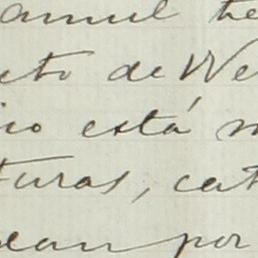 anuel te
to de We
co está
turas, cat
ean por